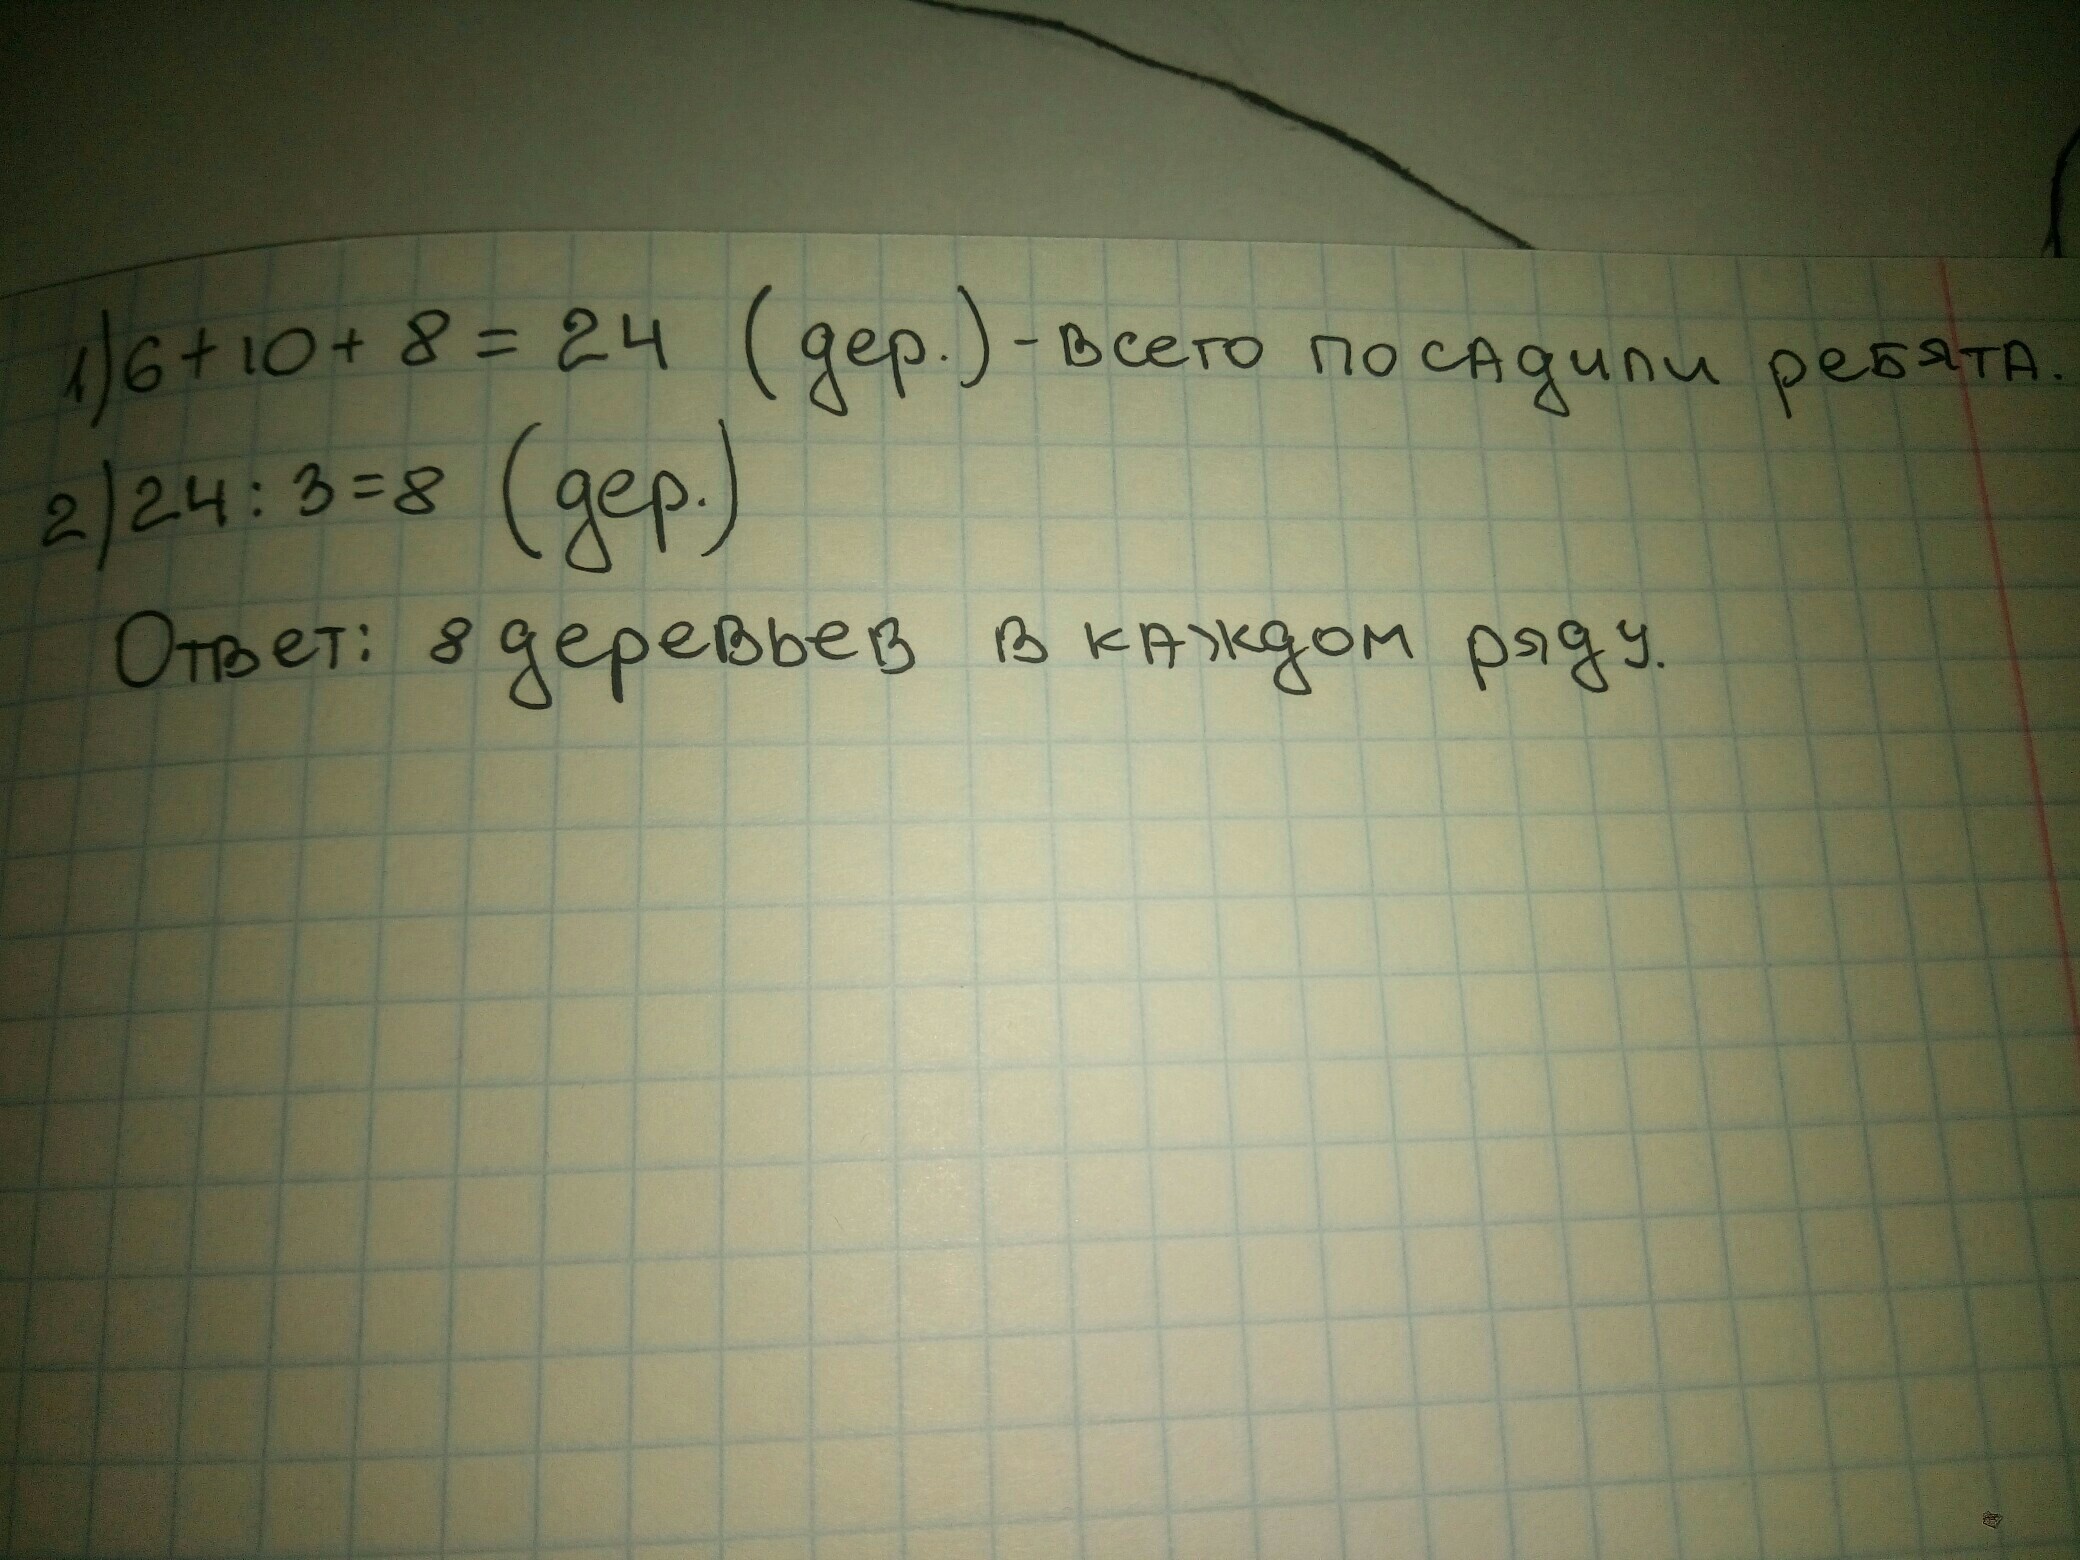 1) 6+10+8=24 (дер.) - всего посадили ребята.
2) 24:3=8 (дер.)
Ответ: 8 деревьев в каждом ряду.